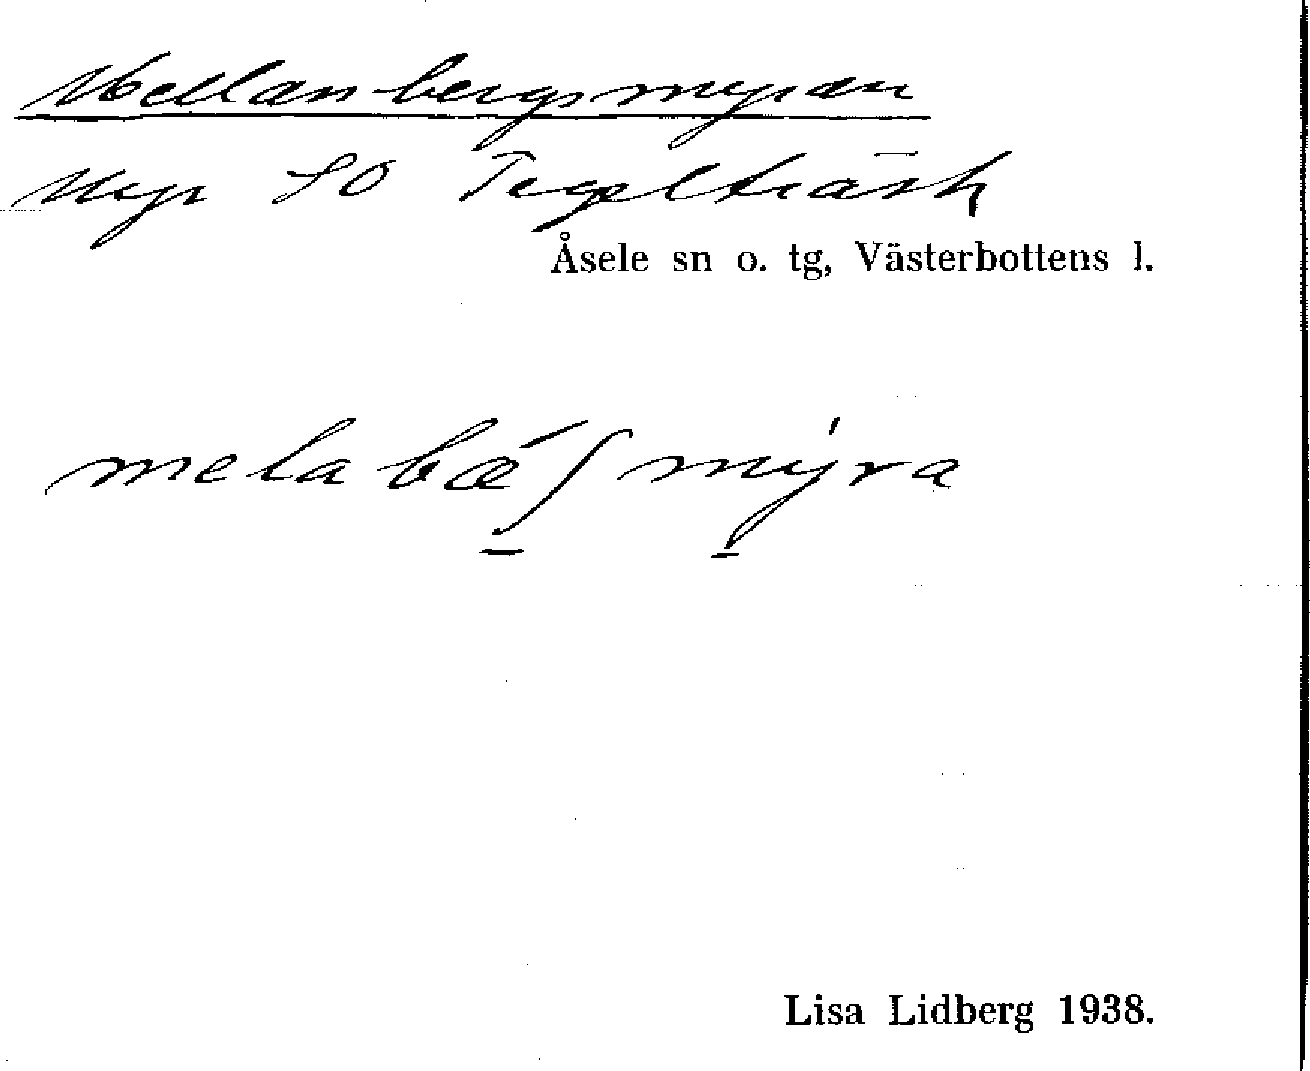 Mellanbergsmyran
Myr SO Tegelträsk
Åsele sn o. tg, Västerbottens l.
melabǽʃmýra
Lisa Lidberg 1938.